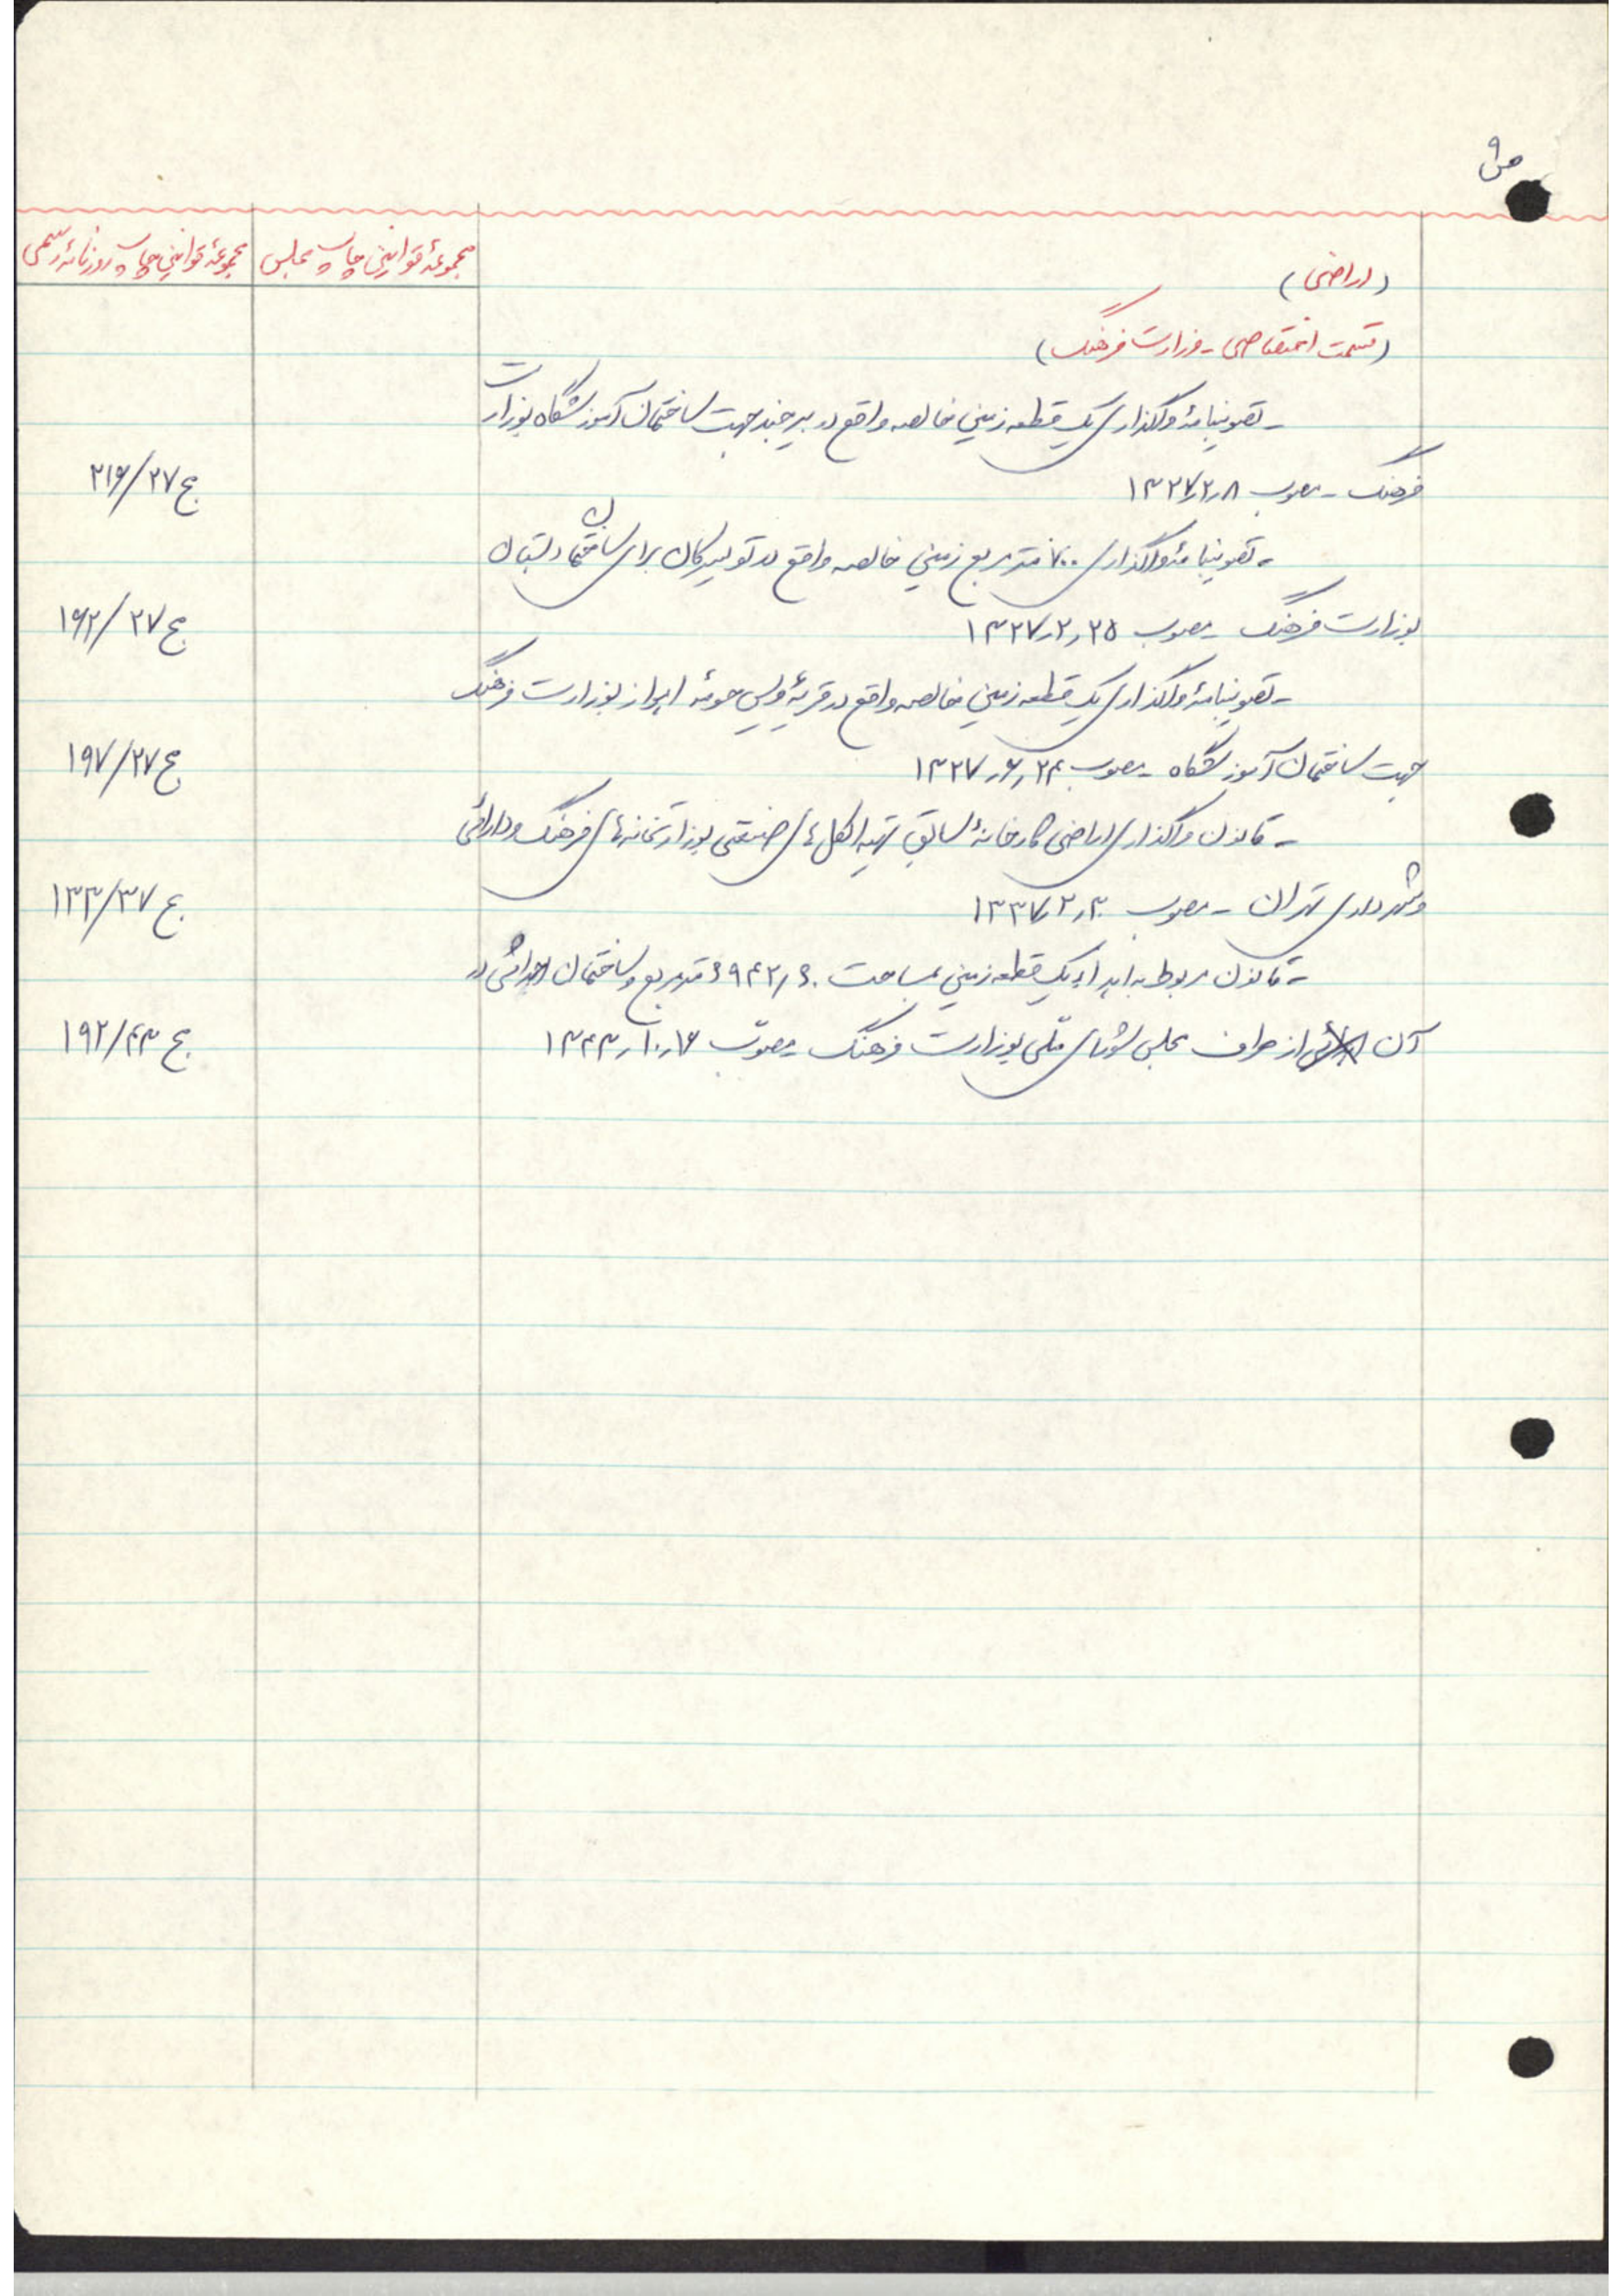 ص ۹
مجموعهٔ قوانین چاپ مجلس
مجموعهٔ قوانین چاپ روزنامهٔ رسمی
(اراضی)
(قسمت اختصاصی - وزارت فرهنگ)
- تصویبنامهٔ واگذاری یک قطعه زمین خالصه واقع در بیرجند جهت ساختمان آموزشگاه بوزارت
فرهنگ - مصوب ۱۳۲۷٫۲٫۸ ج ۲۱۶/۲۷
- تصویبنامهٔ واگذاری ۷۰۰ متر مربع زمین خالصه واقع در تویسرکان برای ساختمان دبستان
بوزارت فرهنگ - مصوب ۱۳۲۷٫۲٫۲۵ ج ۱۶۲/۲۷
- تصویبنامهٔ واگذاری یک قطعه زمین خالصه واقع در قریهٔ ویس حومهٔ اهواز بوزارت فرهنگ
جهت ساختمان آموزشگاه - مصوب ۱۳۲۷٫۶٫۲۴ ج ۱۹۷/۲۷
- قانون واگذاری اراضی کارخانهٔ سابق تهیه الکل های صنعتی بوزارتخانه های فرهنگ و دارائی
و شهرداری تهران - مصوب ۱۳۳۷٫۲٫۳۰ ج ۱۳۳/۳۷
- قانون مربوط به اهداء یک قطعه زمین بمساحت ۶۹۴۲٫۶۰ متر مربع و ساختمان اهدائی در
آن از طرف مجلس شورای ملی بوزارت فرهنگ - مصوّب ۱۳۴۳٫۱۰٫۱۶ ج ۱۹۲/۴۳